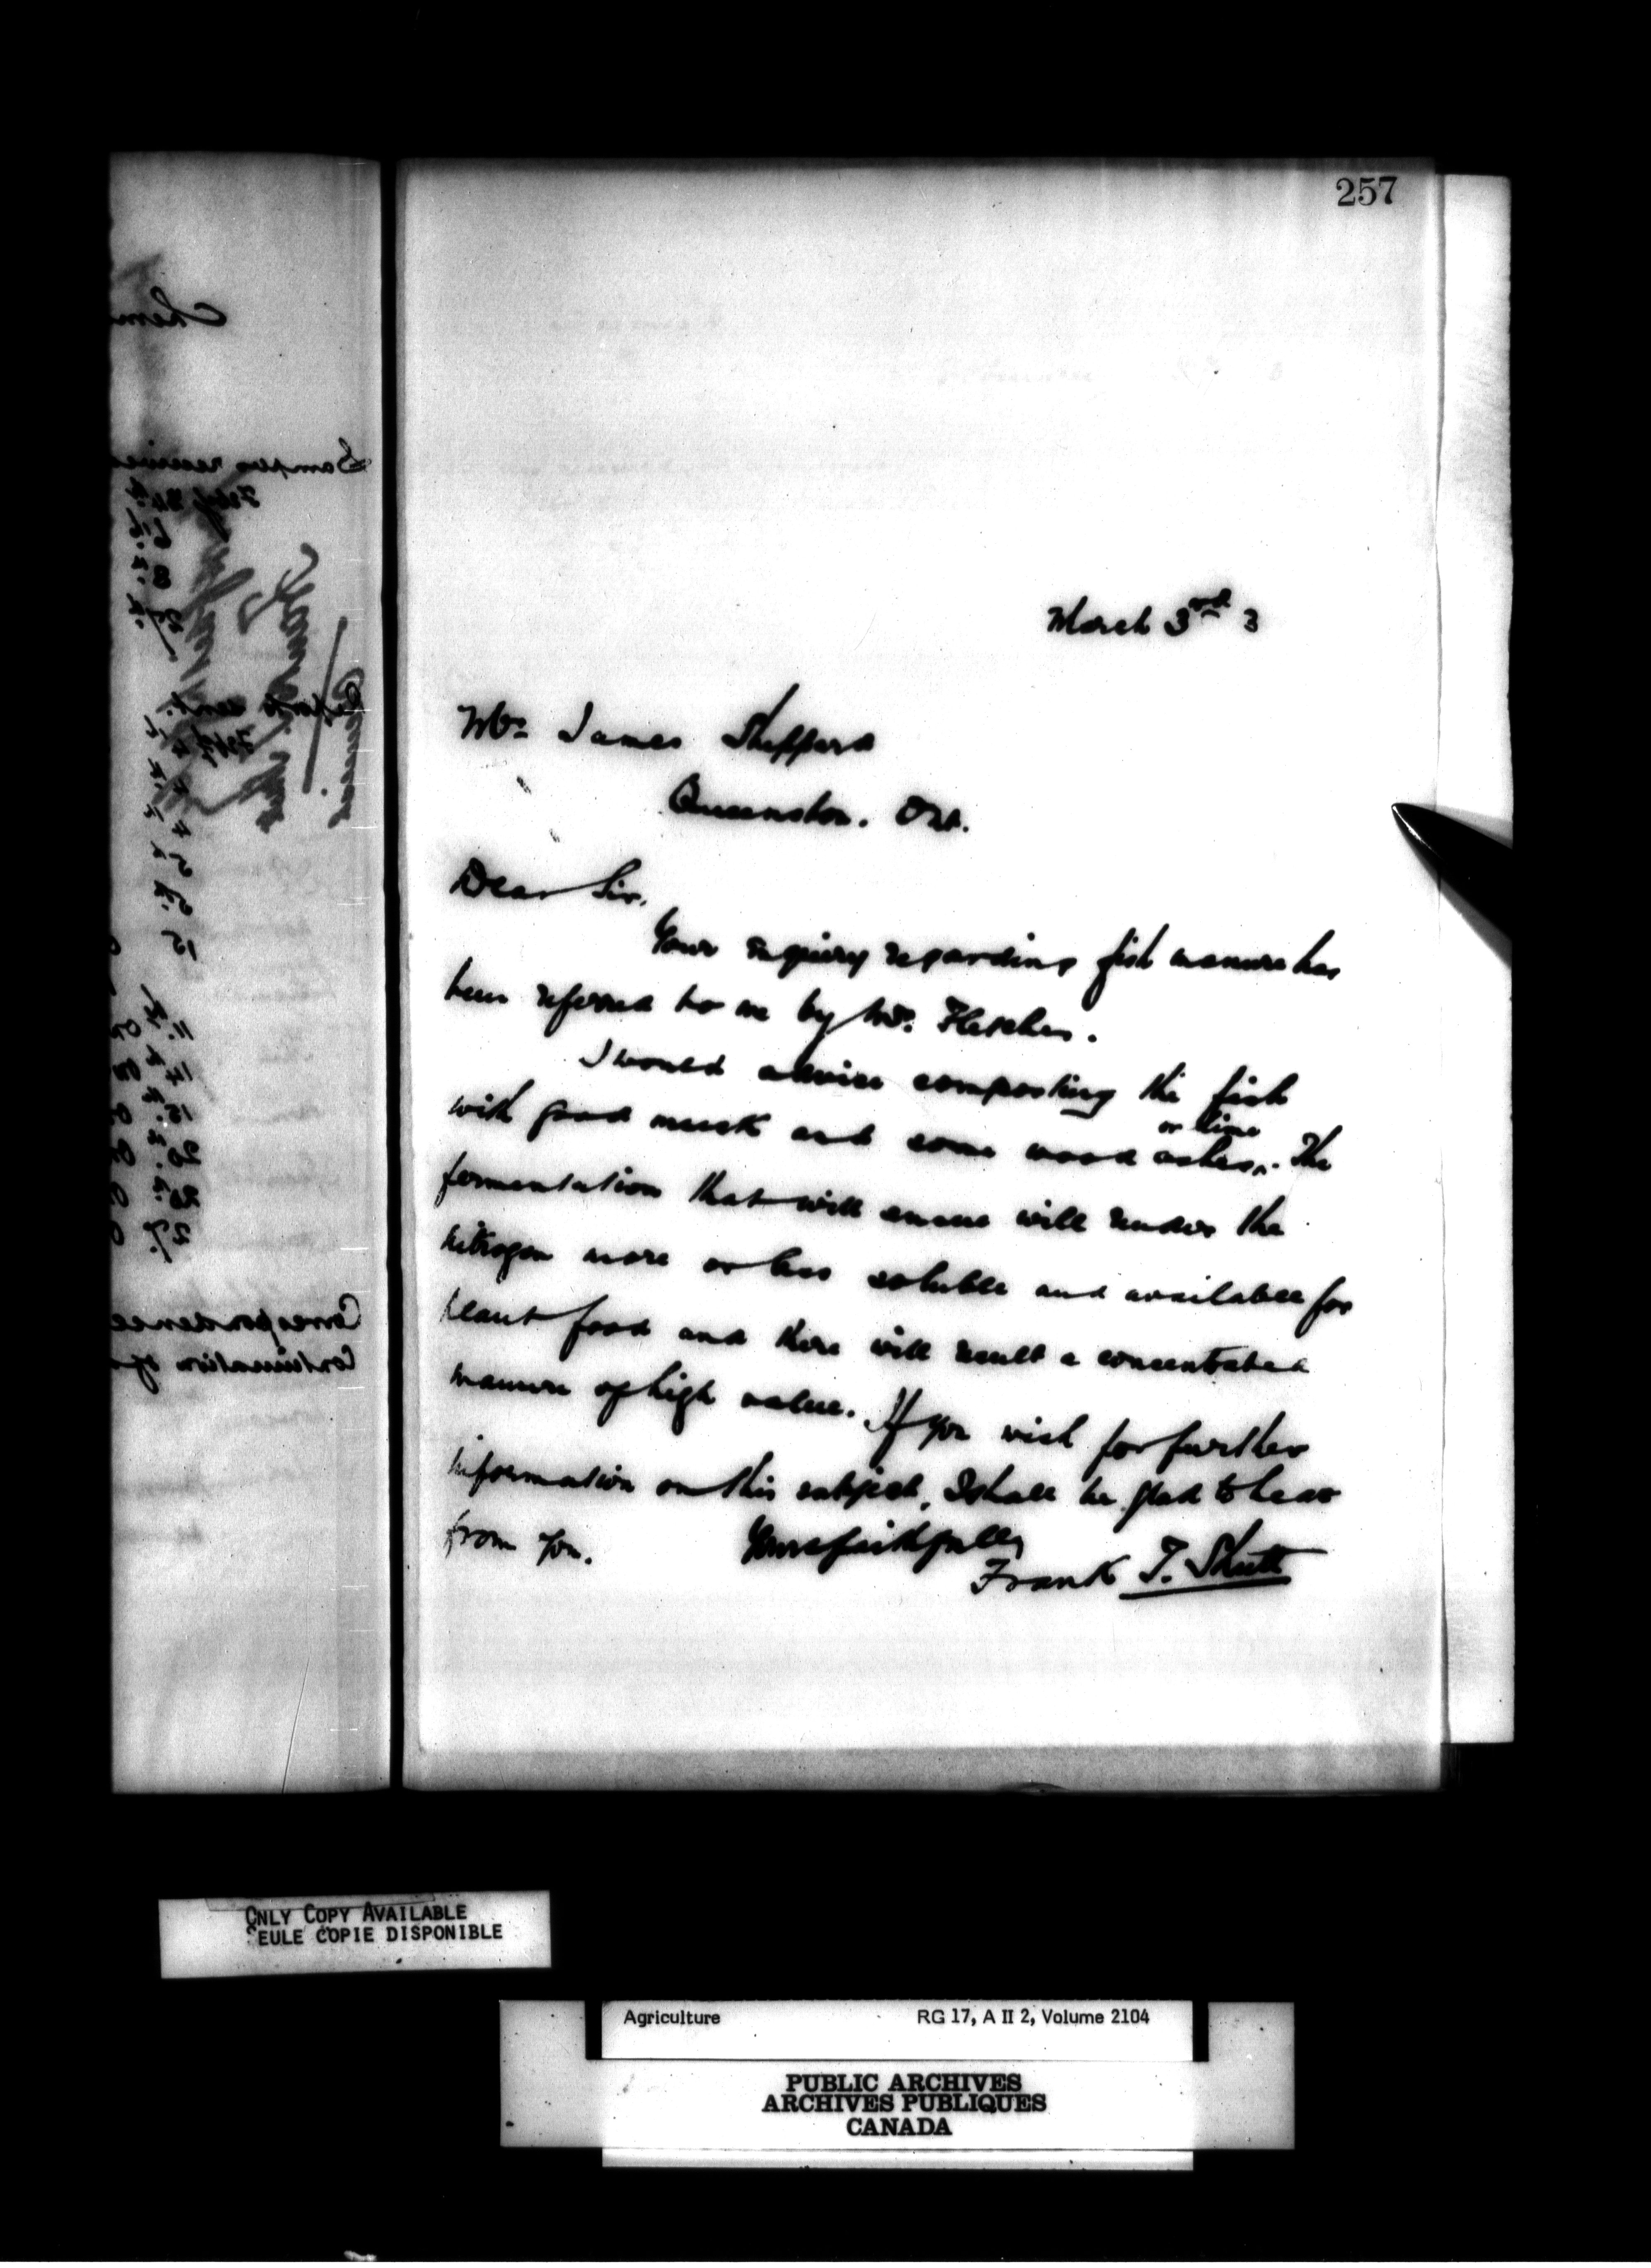 257
March 3rd 3
Mr James Sheppard
Queenston. Ont.
Dear Sir,
Your inquiry regarding fish manure has
been referred to me by Mr. Fletcher.
I would advise composting the fish
or lime
with good muck and some wood ashes. The
fermentation that will ensue will render the
nitrogen more or less soluble and available for
plant food and there will result a concentrated
manure of high value. If you wish for further
information on this subject, I shall be glad to hear
from you.
Yours faithfully
Frank T. Shutt
Chem
Samples receive
Feby
Reports sent.
Feby
Correspondence
Continuation of
ONLY COPY AVAILABLE
SEULE COPIE DISPONIBLE
Agriculture RG 17, A II 2, Volume 2104
PUBLIC ARCHIVES
ARCHIVES PUBLIQUES
CANADA